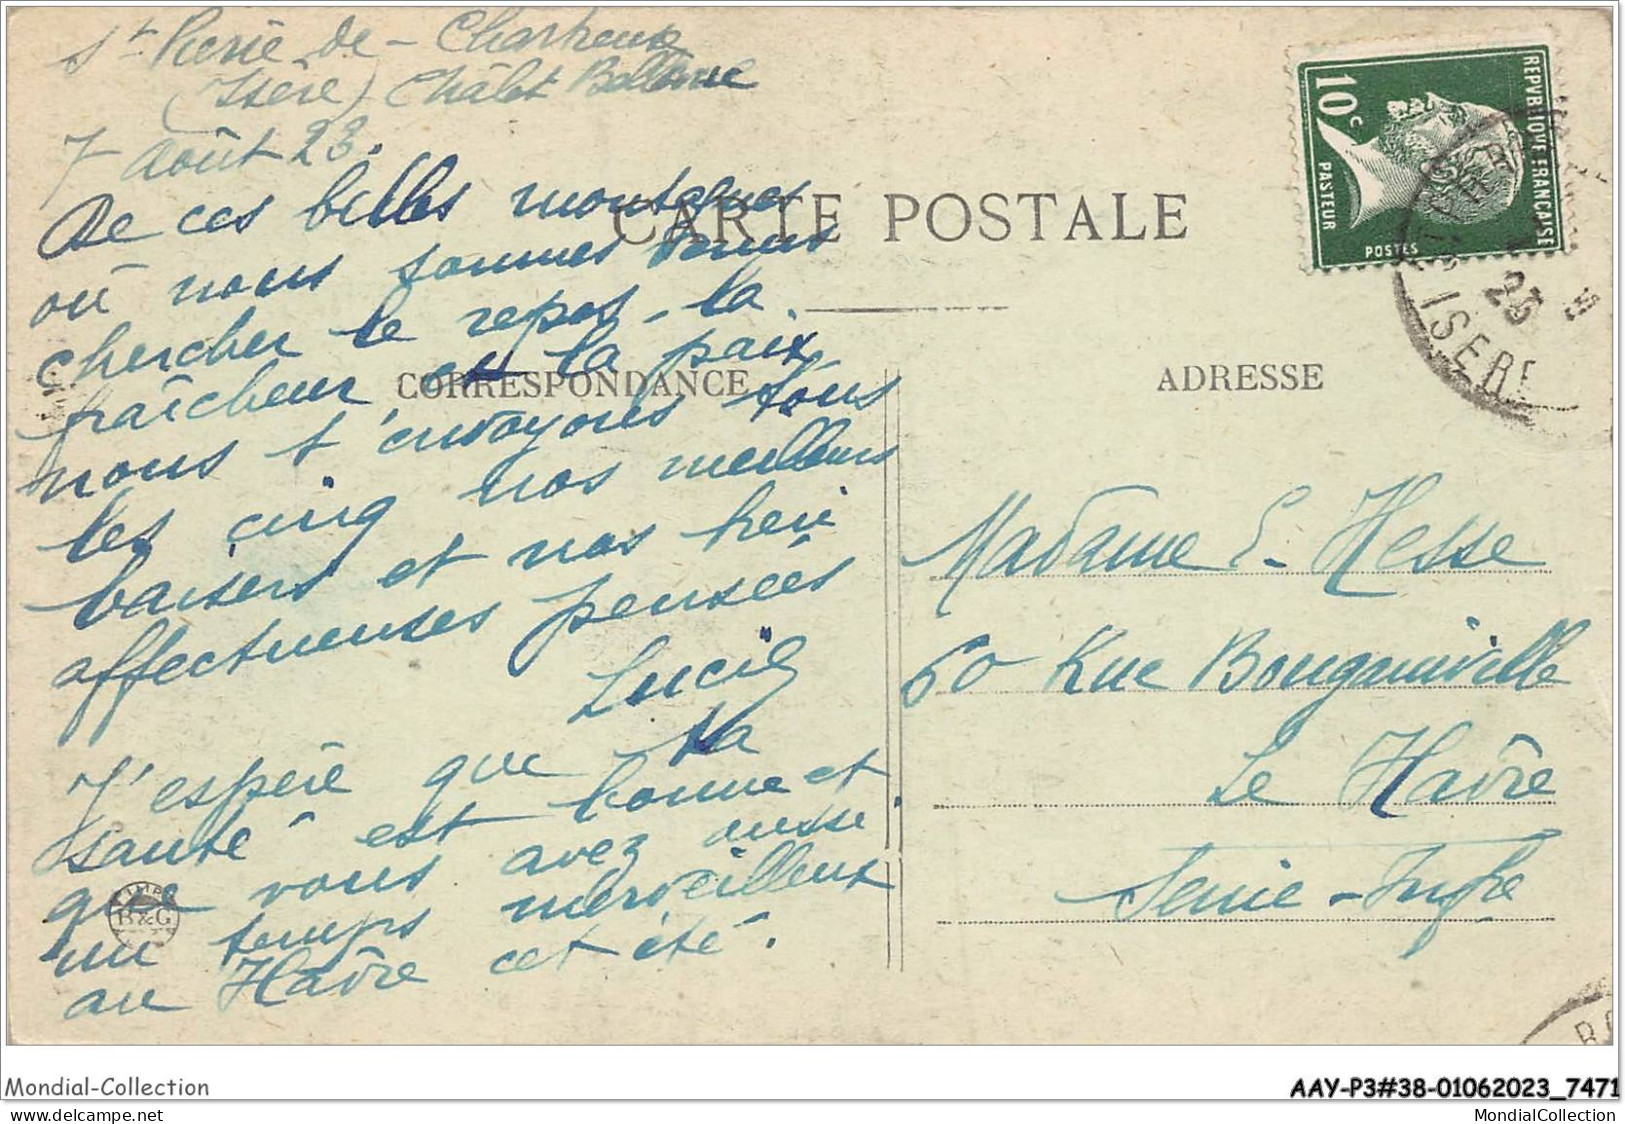 St Pierre de - Chartreuse
(Isère) Châlet Bellevue
7 Août 23.
De ces belles montagnes
où nous sommes venus
chercher le repos - la
fraîcheur et la paix,
nous t'envoyons tous
les cinq nos meilleurs
baisers et nos
affectueuses pensées
Lucie
J'espère que ta
santé est bonne et
que vous avez aussi
un temps merveilleux
au Havre cet été.
CARTE POSTALE
CORRESPONDANCE
B&G
REPVBLIQVE FRANÇAISE
10c
PASTEUR
POSTES
23
ISERE
ADRESSE
Madame E. Hesse
60 Rue Bougainville
Le Havre
Seine - Infre
Mondial-Collection
AAY-P3#38-01062023_7471
MondialCollection.com
MondialCollection